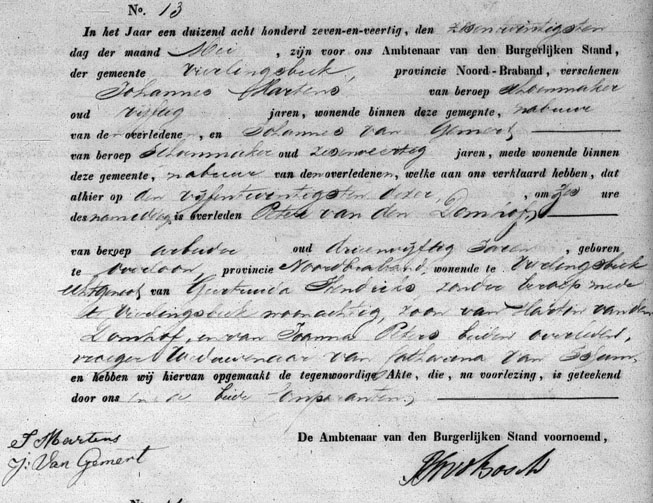 No. 13
In het Jaar een duizend acht honderd zeven-en-veertig, den zesentwintigsten
dag der maand Mei, zijn voor ons Ambtenaar van den Burgerlijken Stand,
der gemeente Vierlingsbeek, provincie Noord-Braband, verschenen
Johannes Martens van beroep Schoenmaker
oud vijftig jaren, wonende binnen deze gemeente, nabuur
van den overledenen, en Johannes van Gemert
van beroep Schoenmaker oud zesenveertig jaren, mede wonende binnen
deze gemeente, nabuur van den overledenen, welke aan ons verklaard hebben, dat
alhier op den vijfentwintigsten dezer, om zes ure
des namiddag is overleden Peter van den Domhof,
van beroep arbeider oud drieenvijftig Jaren, geboren
te Overloon provincie Noordbraband, wonende te Vierlingsbeek
Echtgenoot van Geertruida Hendriks zonder beroep mede
te Vierlingsbeek woonachtig, zoon van Marten van den
Domhof, en van Joanna Peters beiden overleden,
vroeger Weduwenaar van Catharina van
en hebben wij hiervan opgemaakt de tegenwoordige Akte, die, na voorlezing, is geteekend
door ons en de beide Comparanten,
De Ambtenaar van den Burgerlijken Stand voornoemd,
J Martens
J: Van Gemert
Bosch